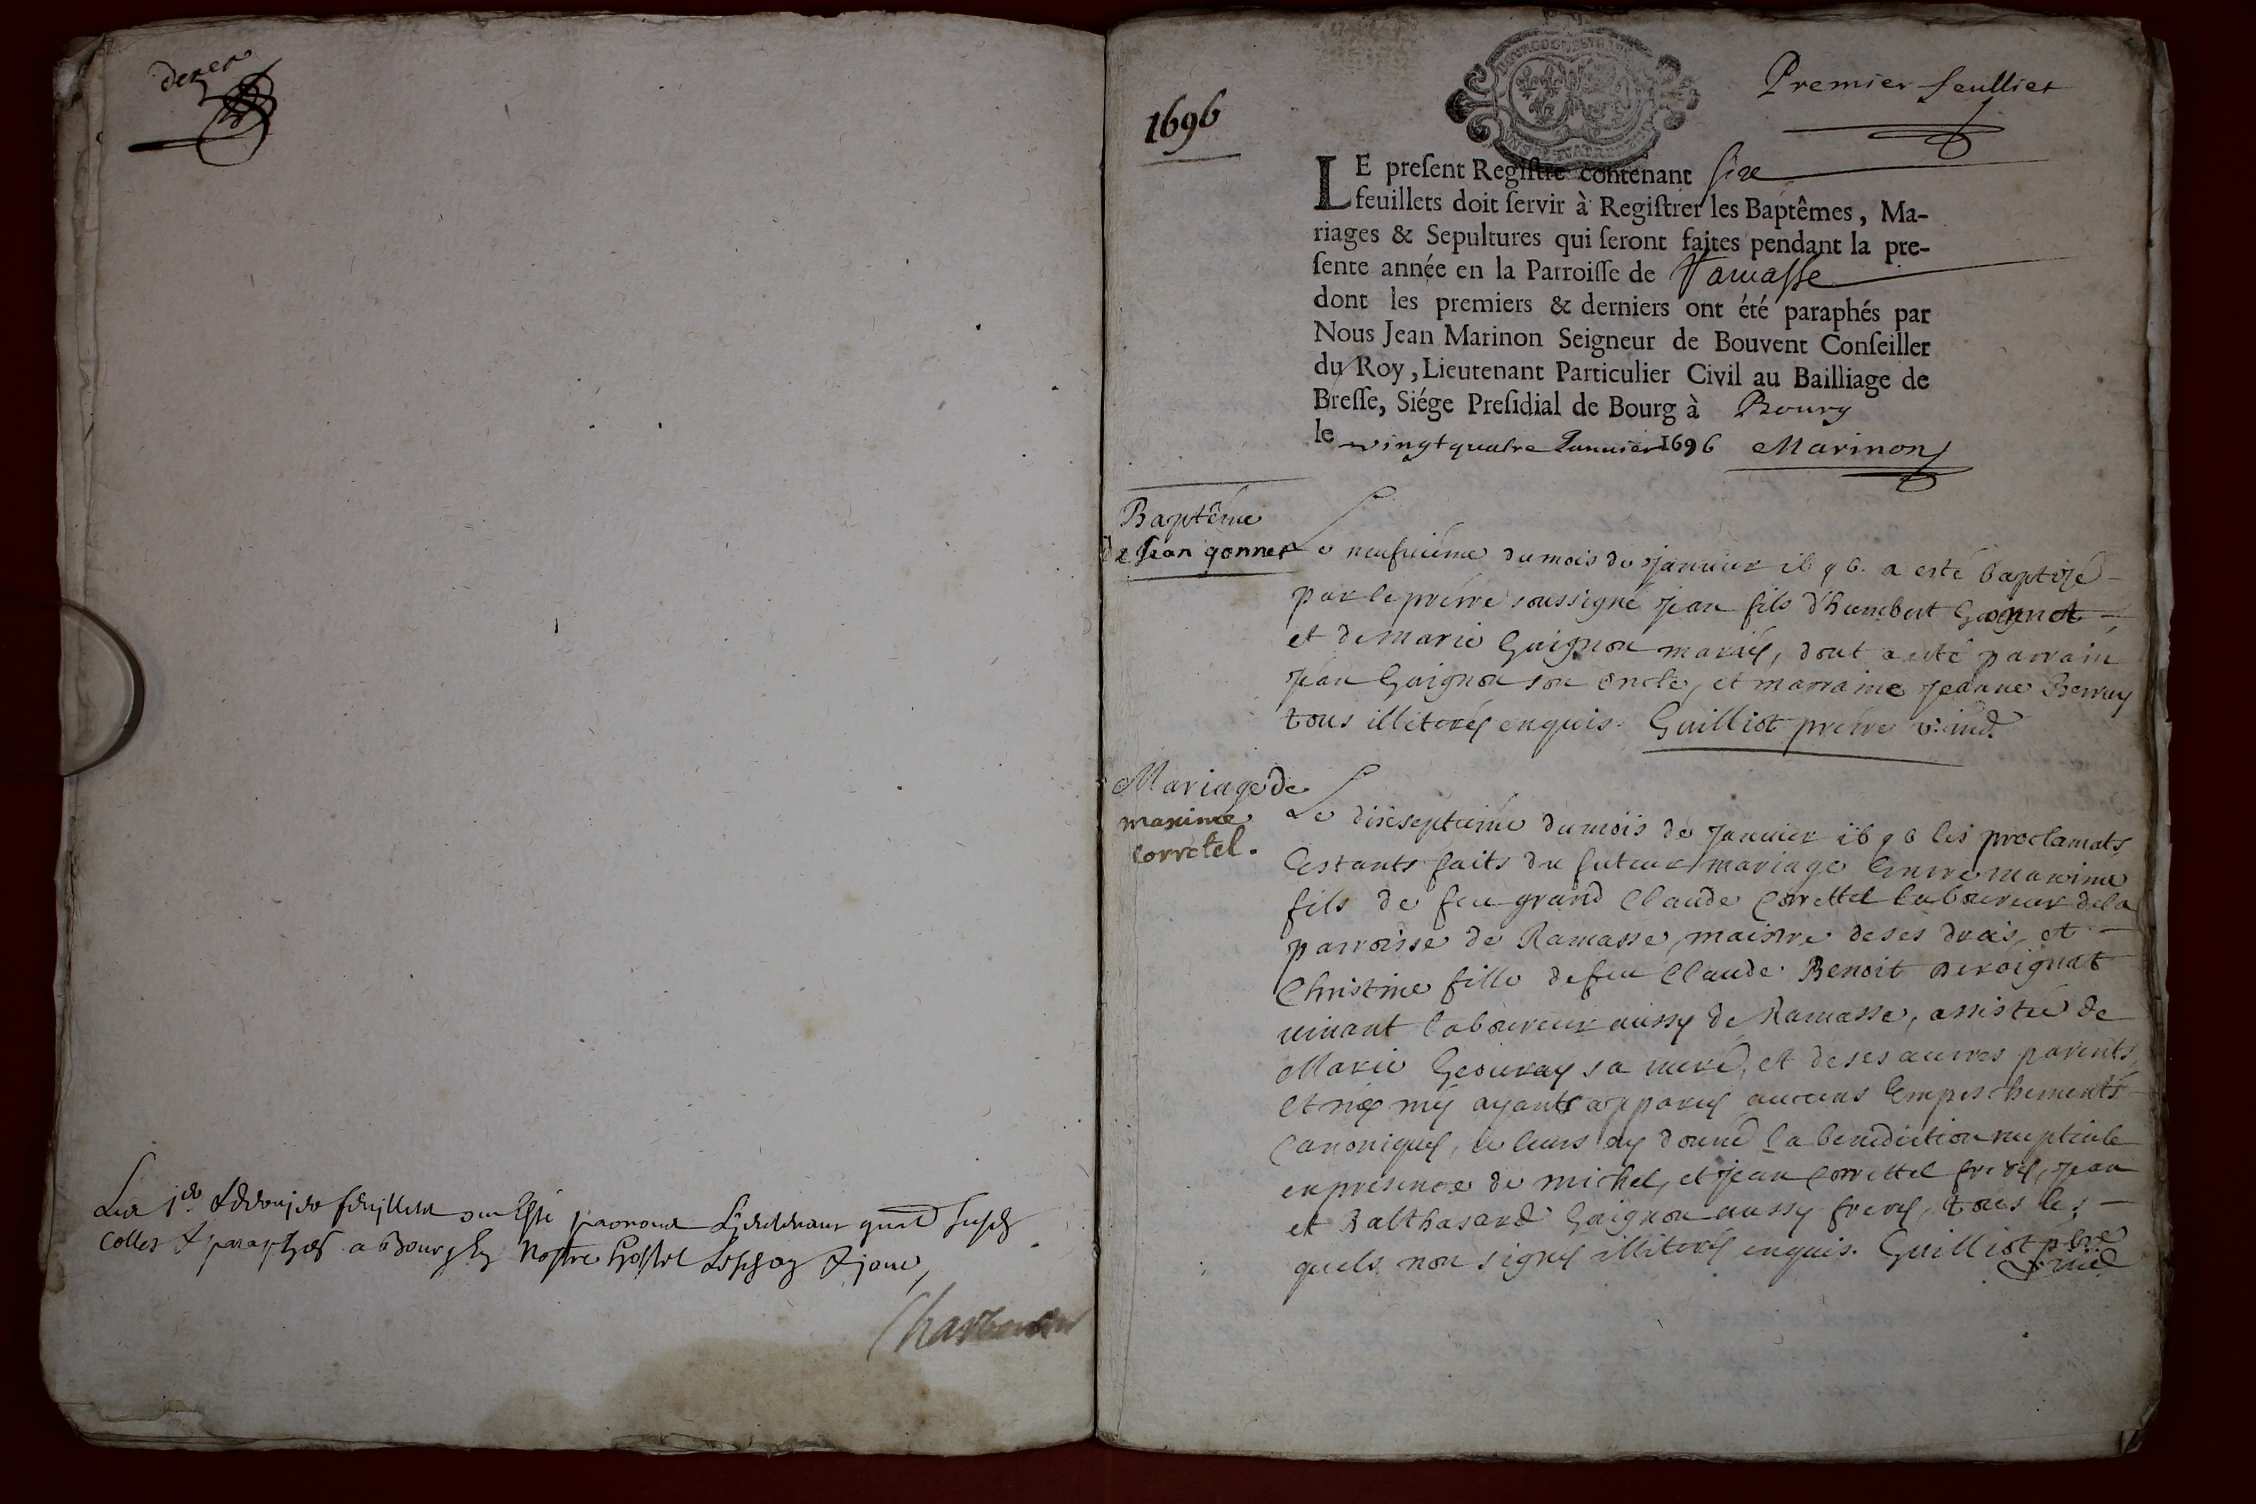 1696
Premier feulliet
LE preſent Regiſtre contenant six
feuillets doit ſervir à Regiſtrer les Baptêmes, Ma-
riages & Sepultures qui ſeront faites pendant la pre-
ſente année en la Parroiſſe de Ramasse
dont les premiers & derniers ont été paraphés par
Nous Jean Marinon Seigneur de Bouvent Conſeiller
du Roy, Lieutenant Particulier Civil au Bailliage de
Breſſe, Siége Preſidial de Bourg à Bourg
le vingt quatre Januier 1696 Marinon
Baptême
de Jean gonnet
Le neufuième du mois de Januier 1696. a esté baptizé
par le prêtre soussigné Jean fils d'humbert Gonnet
et de Marie Guignon mariés, dont a esté parrain
Jean Guignon son oncle, et marraine Jeanne
tous illiterés enquis. Guilliot prêtre
Mariage de
maxime
Corretel.
Le dixseptième du mois de Januier 1696 les proclamats
estants faits du futeur mariage Entre maxime
fils de feu grand Claude Correttel laboureur de la
parroisse de Ramasse, maistre de ses drois, et
Christine fille de feu Claude Benoit Peroignat
uiuant laboureur aussy de Ramasse, assistée de
Marie sa mere, et de ses autres parents,
et ayants apparus aucuns Empeschements
Canoniques, Je leurs ay donné la benediction nuptiale
en presence de michel, et Jean Correttel freres, Jean
et Balthasard Guignon aussy freres, tous les
quels non signés illiterés enquis. Guilliot pbre
collés & paraphés a Bourg En Nostre hostel